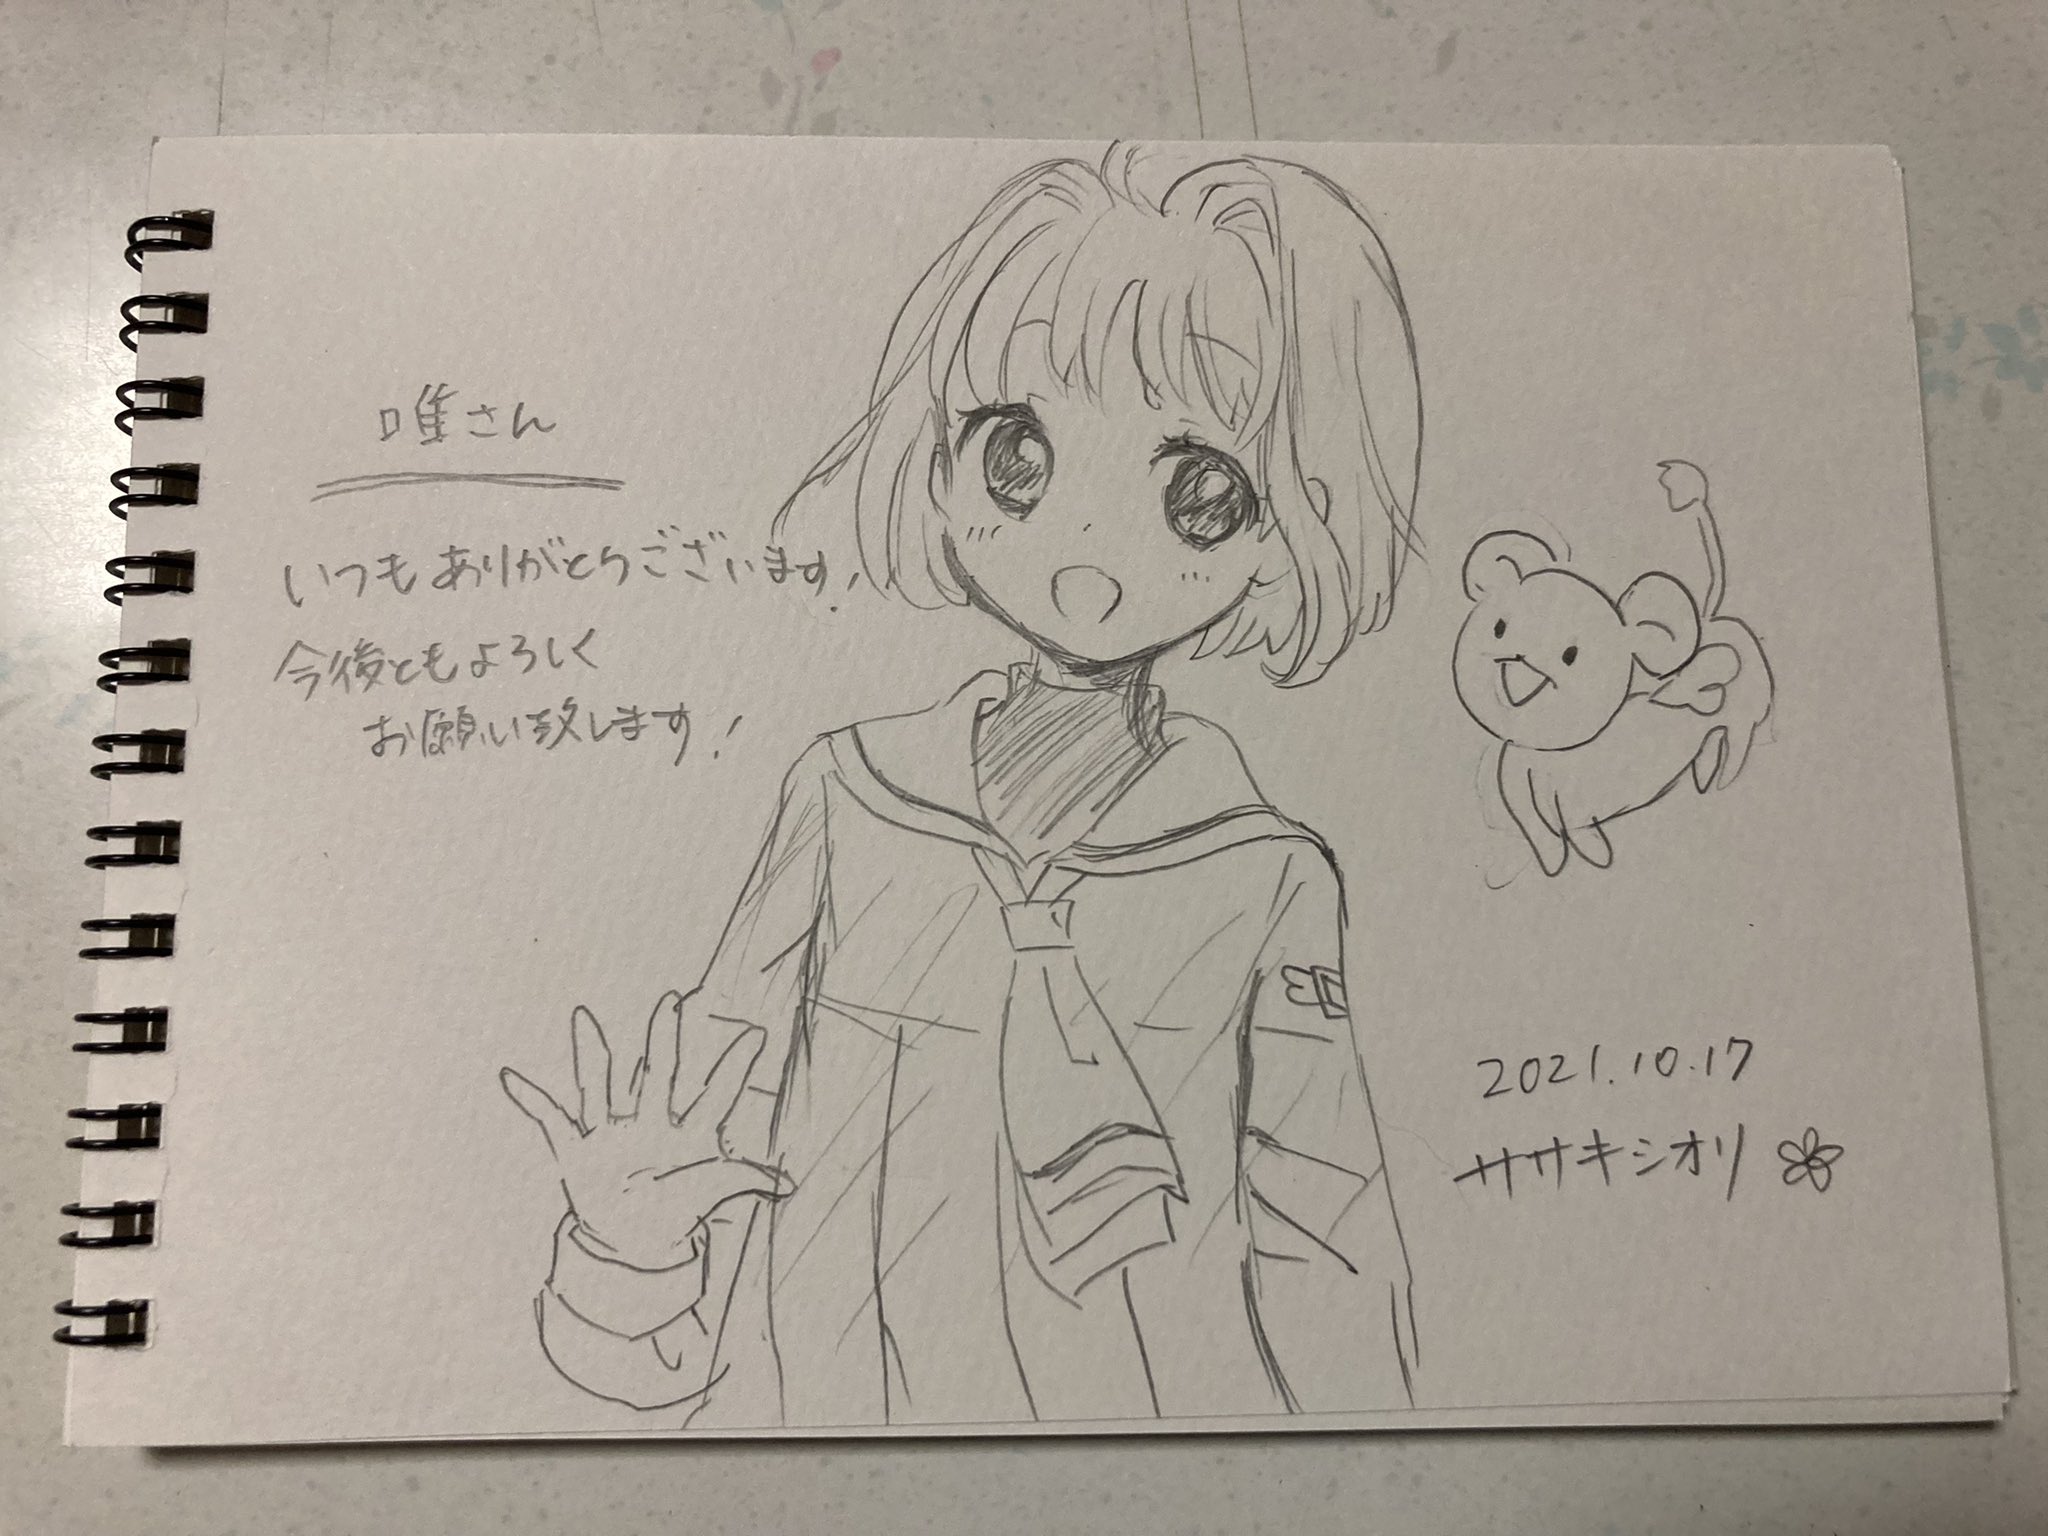 唯さん
いつもありがとうございます!
今後ともよろしく
お願い致します!
2021.10.17
ササキシオリ